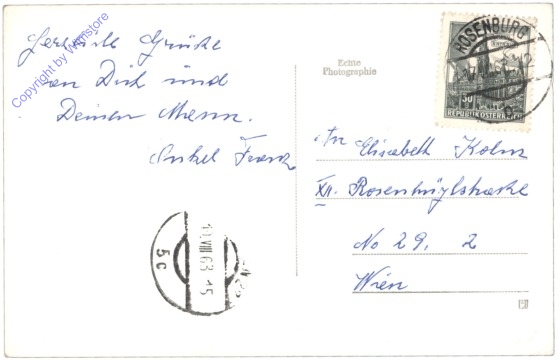 Herzliche Grüße
von Dich und
Deinen Mann.
Onkel Franz
Echte
Photographie
ROSENBURG
50
REPUBLIK ÖSTERREICH
An Elisabeth Kolm
XII. Rosenhüglstraße
No 29. 2
Wien
11.VIII 63. 15
5c
Copyright by Wimstore